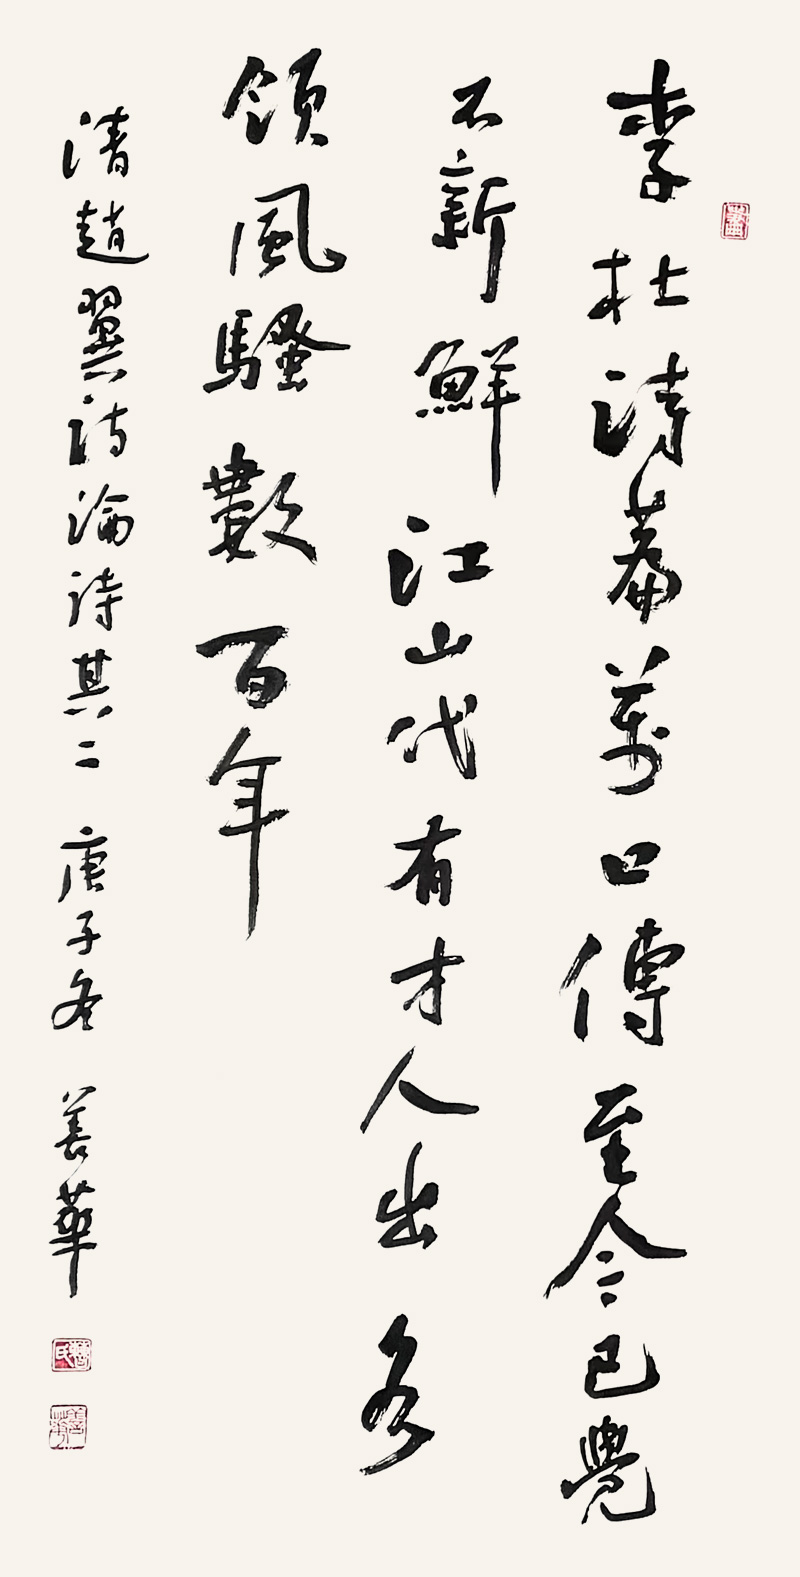 李杜詩篇萬口傳至今已覺
不新鮮江山代有才人出各
領風騷數百年
清趙翼詩論詩其二 庚子冬 善華
善華